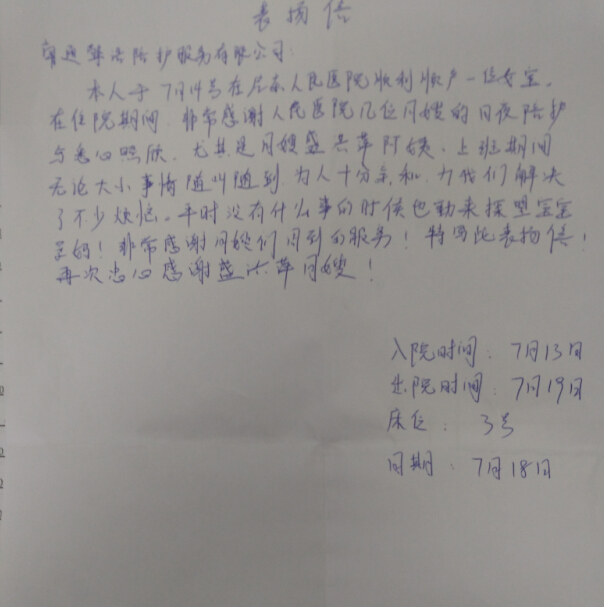 表扬信
陪护服务有限公司:
本人于7月14号在人民医院顺利顺产一位女宝,
在住院期间,非常感谢人民医院几位月嫂的日夜陪护
与悉心照顾,尤其是月嫂盛兰萍阿姨,上班期间
无论大小事情随叫随到,为人十分亲和,为我们解决
了不少烦恼。平时没有什么事的时候也勤来探望宝宝
宝妈!非常感谢月嫂们周到的服务!特写此表扬信!
再次忠心感谢盛兰萍月嫂!
入院时间:7月13日
出院时间:7月19日
床位:3号
日期:7月18日